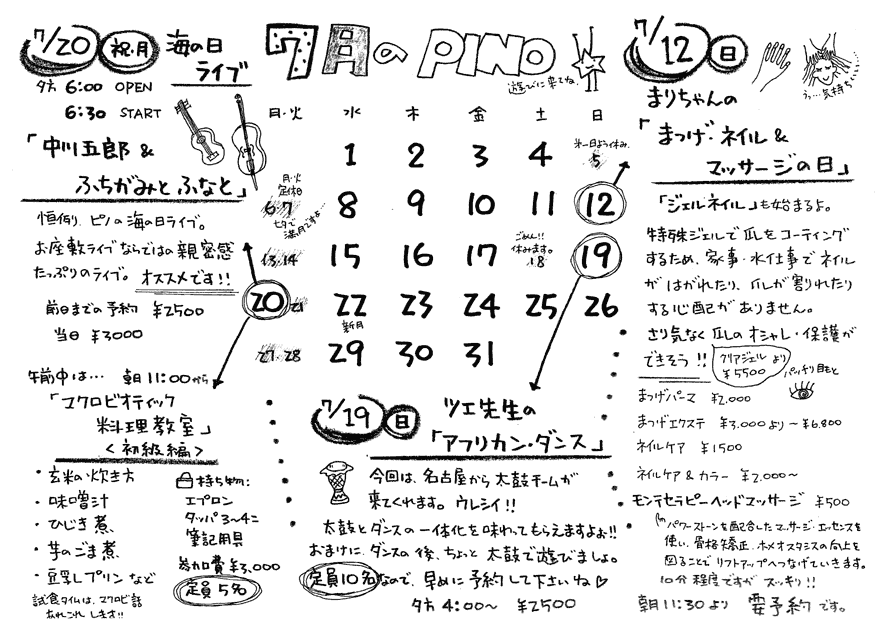 7月のPINO
遊びに来てね。
7/20 祝・月 海の日
ライブ
夕方 6:00 OPEN
6:30 START
「中川五郎 &
ふちがみとふなと」
恒例、ピノの海の日ライブ。
お座敷ライブならではの親密感
たっぷりのライブ。オススメです!!
前日までの予約 ¥2500
当日 ¥3000
午前中は… 朝11:00から
「マクロビオティック
料理教室」
<初級編>
・玄米の炊き方
・味噌汁
・ひじき煮
・芋のごま煮
・豆乳プリン など
試食タイムは、マクロビ話
あれこれ します!!
持ち物:
エプロン
タッパ 3~4コ
筆記用具
参加費 ¥3,000
定員 5名
日・火 水 木 金 土 日
1 2 3 4 5
第一日よう休み。
月・火
定休日
6・7 8 9 10 11 12
七夕で
満月ですよ…
13・14 15 16 17 18 19
ごめん!!
休みます。
20 21 22 23 24 25 26
新月
27・28 29 30 31
7/19 日 ツエ先生の
「アフリカン・ダンス」
今回は、名古屋から太鼓チームが
来てくれます。ウレシイ!!
太鼓とダンスの一体化を味わってもらえますよぉ!!
おまけに、ダンスの後、ちょっと太鼓で遊びましょ。
定員10名なので、早めに予約して下さいね♡
夕方 4:00~ ¥2500
7/12 日
うっ…気持ち
まりちゃんの
「まつげ・ネイル &
マッサージの日」
「ジェルネイル」も始まるよ。
特殊ジェルで爪をコーティング
するため、家事・水仕事でネイル
がはがれたり、爪が割れたり
する心配がありません。
さり気なく爪のオシャレ・保護が
できそう!!
クリアジェルより
¥5500
パッチリ目もと
まつげパーマ ¥2.000
まつげエクステ ¥3.000より~¥6.800
ネイルケア ¥1500
ネイルケア & カラー ¥2.000~
モンテセラピーヘッドマッサージ ¥500
パワーストーンを配合したマッサージ・エッセンスを
使い、骨格矯正、ホメオスタシスの向上を
図ることでリフトアップへつなげていきます。
10分程度ですが スッキリ!!
朝11:30より 要予約です。